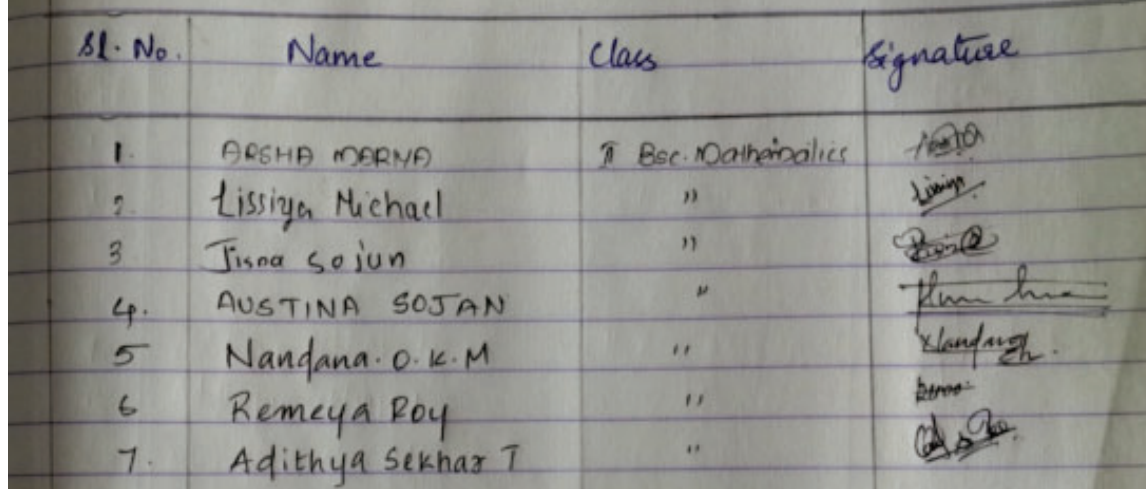 Sl. No. Name Class Signature
1. ARSHA MARIYA II Bsc. Mathematics
2. Lissiya Michael " Lissiya
3 Jisna Sojun "
4. AUSTINA SOJAN "
5 Nandana. O. K. M "
6 Remeya Roy "
7. Adithya Sekhar T "